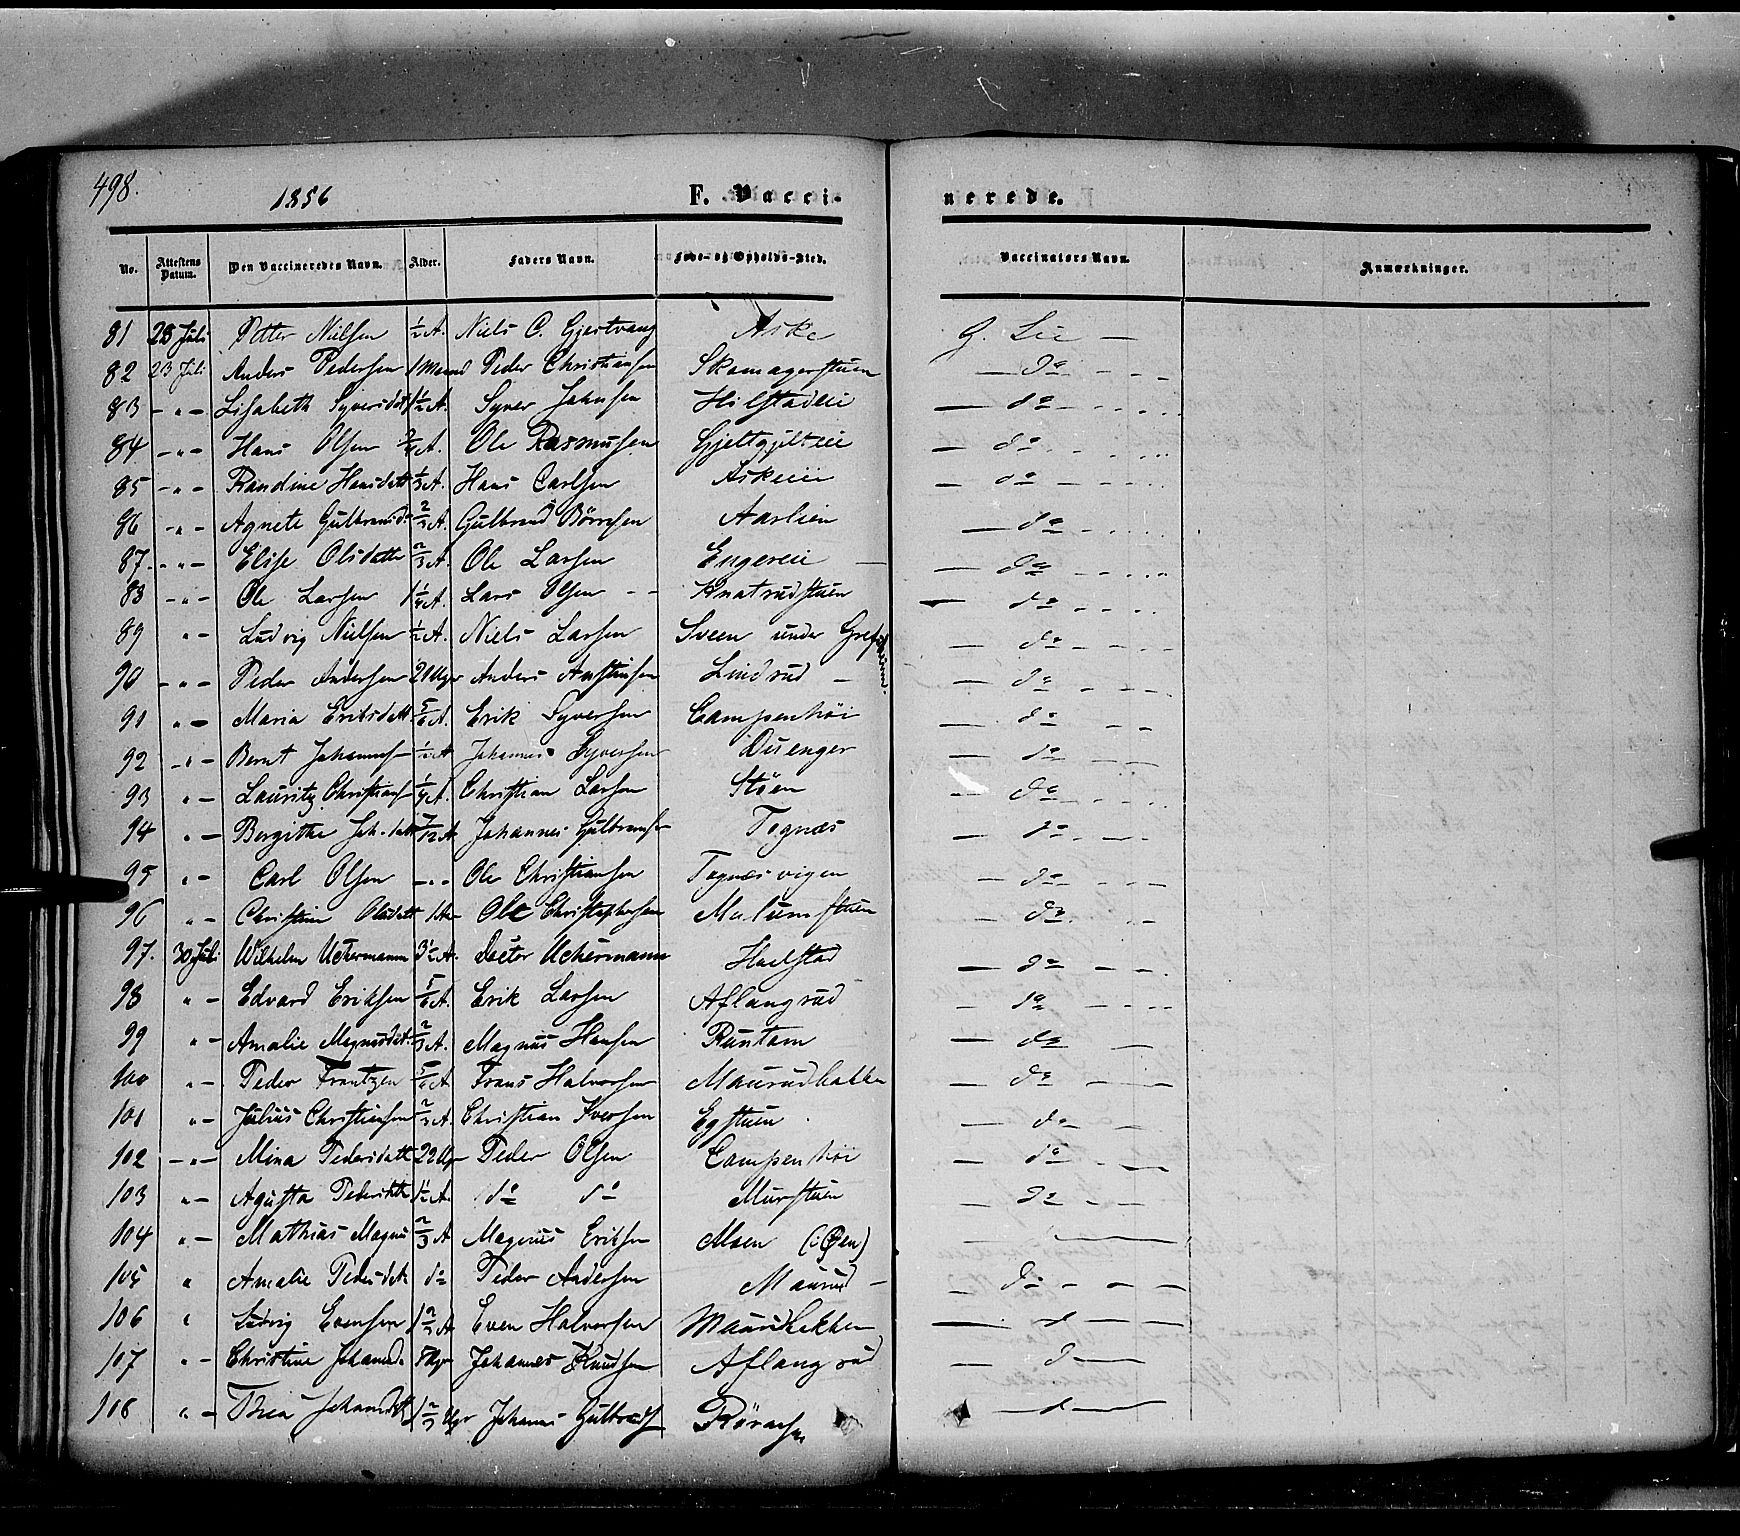 498.
1856
F. Vacci-
nerede.
No. Attestens Datum. Den Vaccineredes Navn. Alder. Faders Navn. Føde- og Opholds-Sted. Vaccinators Navn. Anmærkninger.
81 23 Juli Petter Nielsen ½ A. Niels C. Gjestvang Aske G. Lie —
82 23 Juli Anders Pedersen 1 Maaned Peder Christiansen Skomagerstuen — do — — —
83 — " — Lisabeth Syversdat 1½ A. Syver Johnsen Hilstadeie — do
84 — " — Hans Olsen A. Ole Rasmusen — do
85 — " — Randine Hansdatt ⅓ A. Hans Carlsen Askeeie — do
86 — " — Agnete Gulbransd. ⅔ A. Gulbrand Børresen Aarlien — do
87. — " — Elise Olsdatter ⅔ A. Ole Larsen Engereie — do
88 — " — Ole Larsen 1¼ A. Lars Olsen — — Knatrudstuen — do
89 " — Ludvig Nielsen ½ A. Niels Larsen Sveen under Grefs — do
90 — " — Peder Andersen 21 Uger Anders Anstensen Lindrud — — do
91 " — Maria Eriksdatt 5/6 A. Erik Syversen Campenhöi — do
92 — " — Bernt Johannes ½ A. Johannes Syversen — do
93 " — Lauritz Christians ¼ A. Christian Larsen Stöen — do
94 " — Bergithe Joh. datt 7/12 A. Johannes Gulbransen Tognæs — do
95 " — Carl Olsen — " — Ole Christiansen Tognæsvigen — do
96 " — Christine Olsdatt 1 Aar Ole Christophersen Malumstuen — do
97. 30 Juli Wilhelm Uchermann 3½ A. Docter Uchermann Hoelstad — do
98 " — Edvard Eriksen 5/6 A. Erik Larsen Aflangrud — do
99 " — Amalie Magnusdat. ⅔ A. Magnus Hansen Runtom — do
100 " — Peder Frantzen 5/6 A. Frans Halvorsen Maurudbakke — do
101 " — Julius Christiansen ⅔ A. Christian Iversen Egstuen — do
102 — " — Mina Pedersdatt 22 Uger Peder Olsen Campenhöi — do
103 " — Agusta Pedersdtt 1½ A. do do Murstuen — do
104 " — Mathias Magnus ⅔ A Magnus Eriksen Moen
105 " Amalie Pedersdt. do Peder Andersen Maurud — — do — — —
106 " Ludvig Evensen 1⅔ A Even Halvorsen Maurudbakken — d — — —
107 " — Christine Johansd. 8 Uger Johannes Knudsen Aflangrud — d —
108 " — Thea Johansdtt 1⅔ Johannes Gulbrads — d —